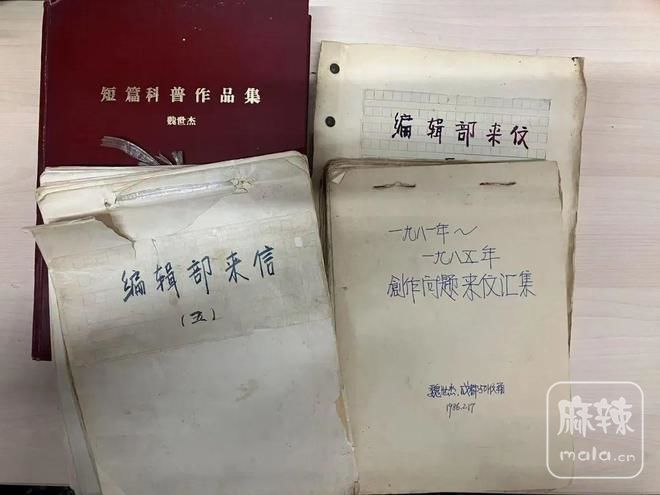 短篇科普作品集
魏世杰
编辑部来仪
编辑部来信
(五)
一九八一年～
一九八五年
創作问题来仪汇集
魏世杰.成都501信箱
1986.2.17
麻辣
mala.cn